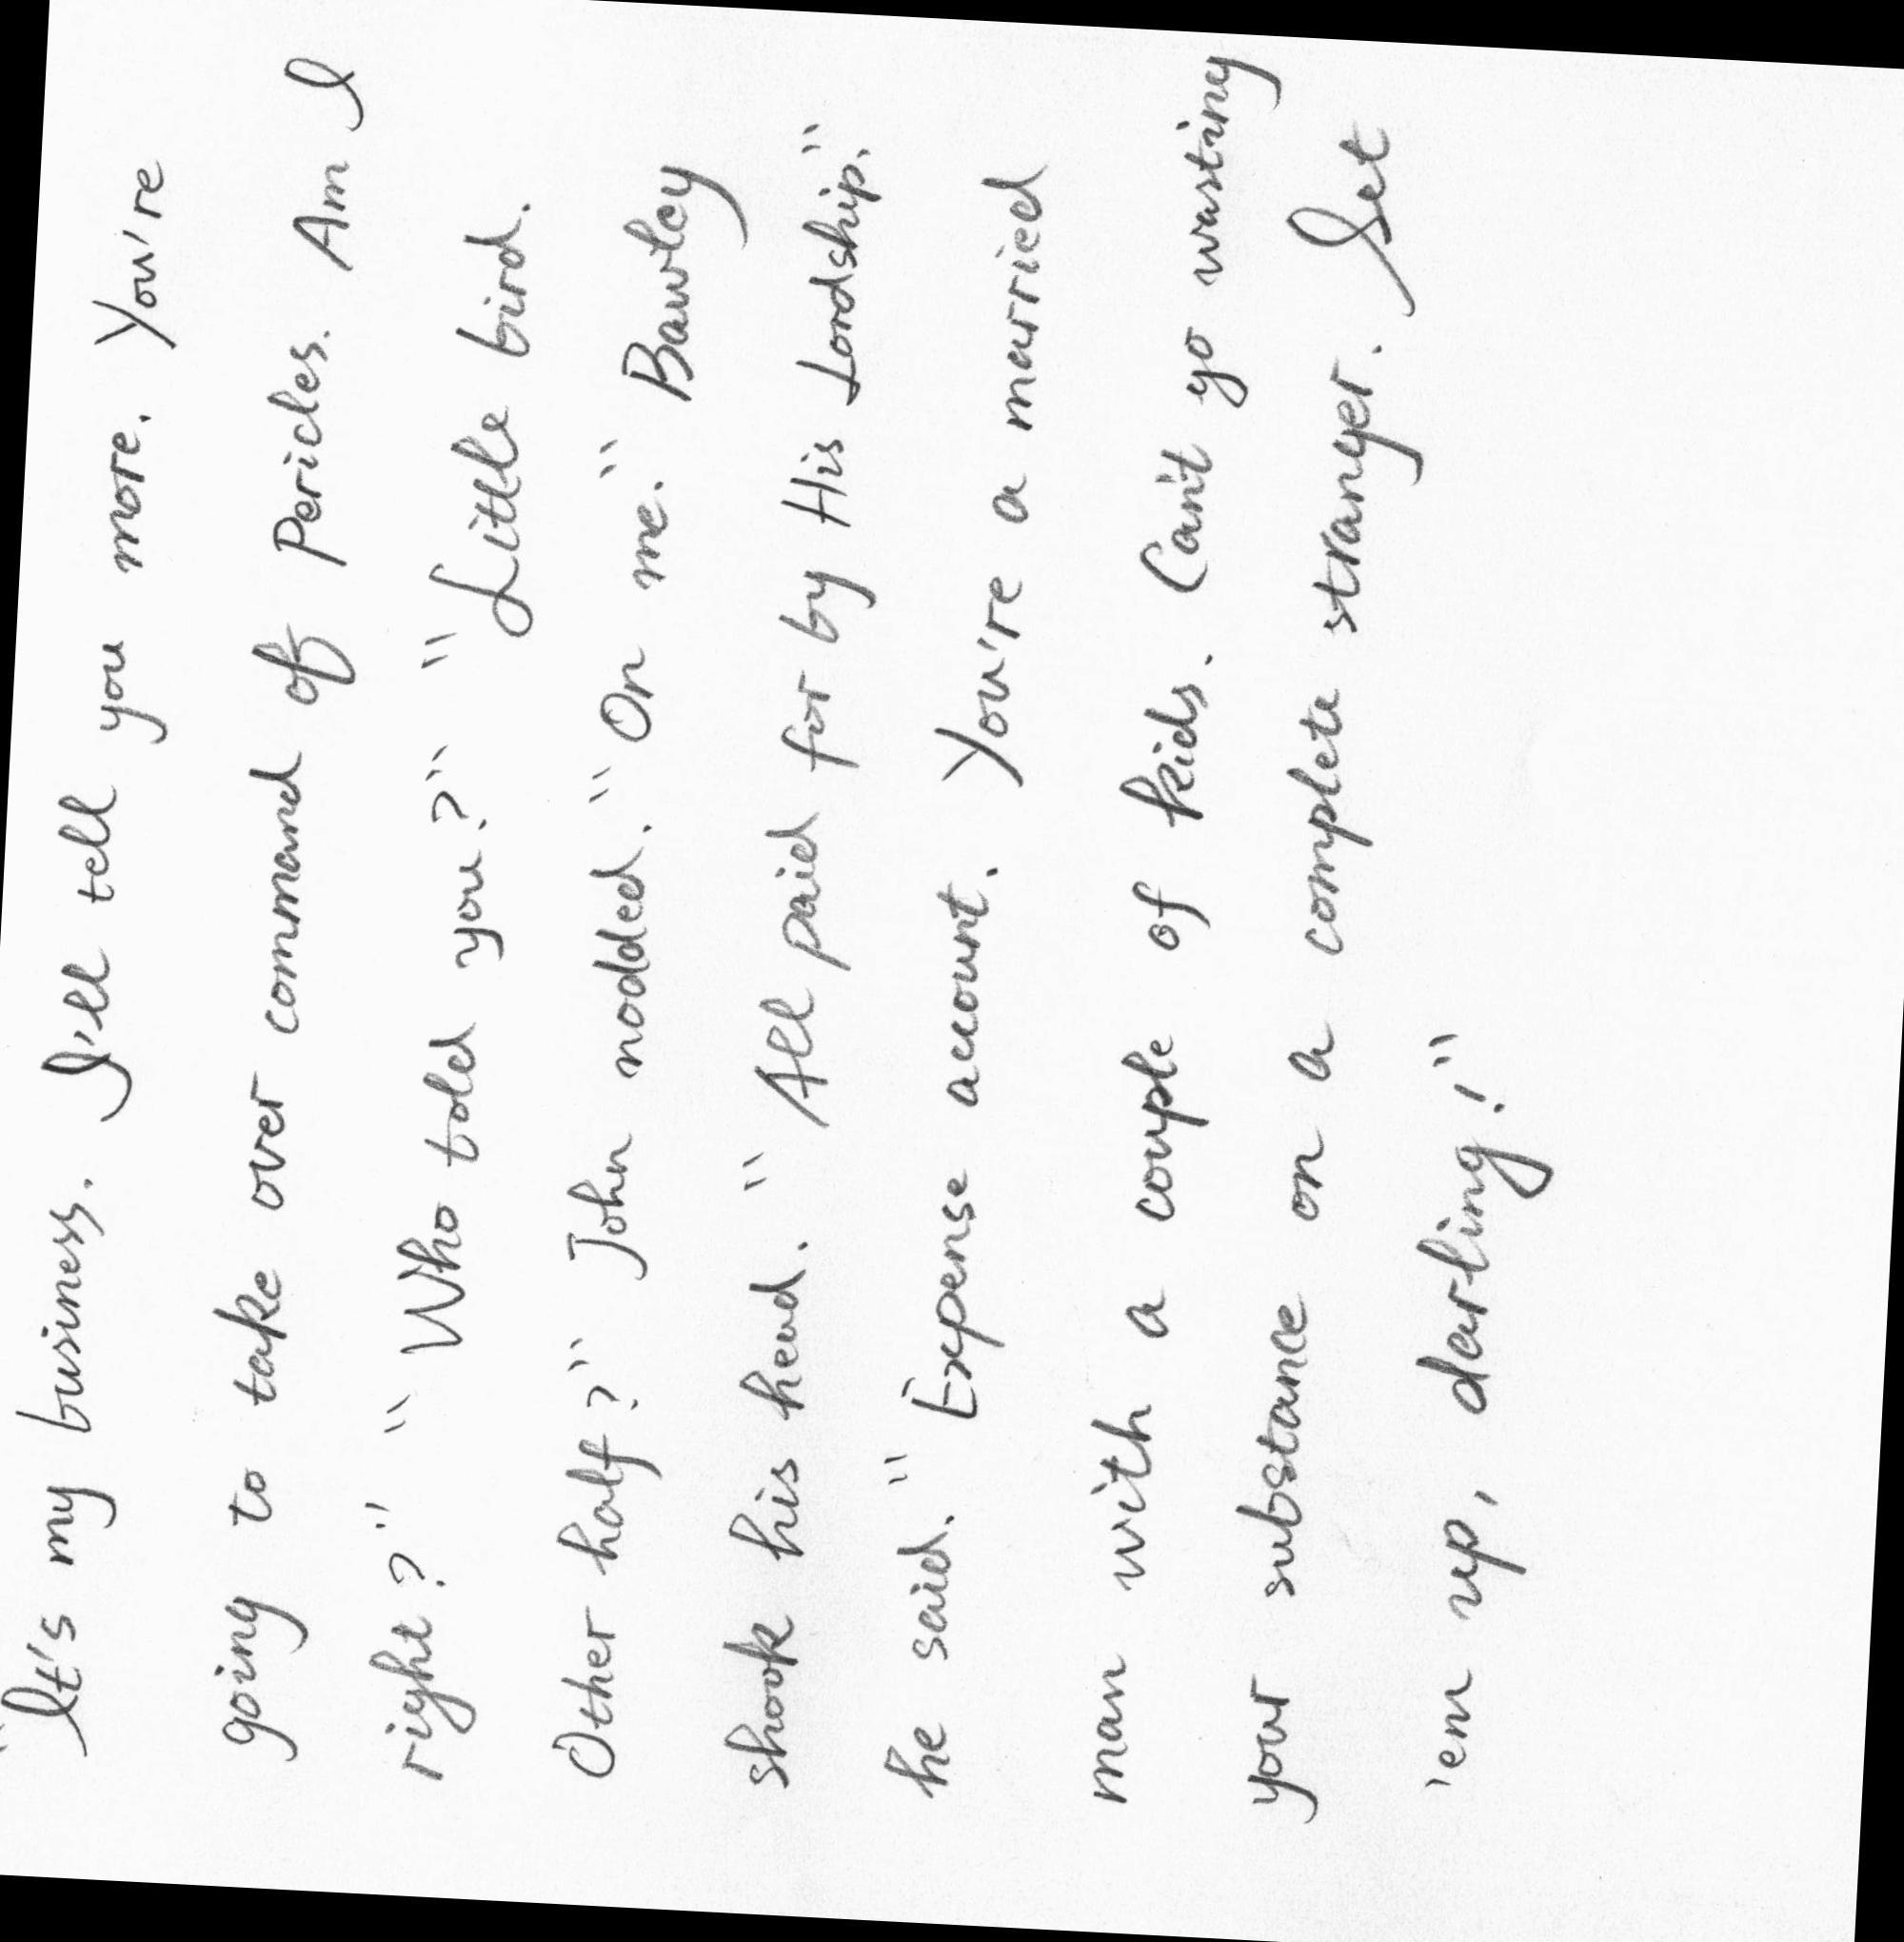 "It's my business. I'll tell you more. You're
going to take over command of Pericles. Am I
right?" "Who told you?" "Little bird.
Other half?" John nodded. "On me." Bawtey
shook his head. "All paid for by His Lordship."
he said. "Expense account. You're a married
man with a couple of kids. Can't go wasting
your substance on a complete stranger. Set
'em up, darling!"